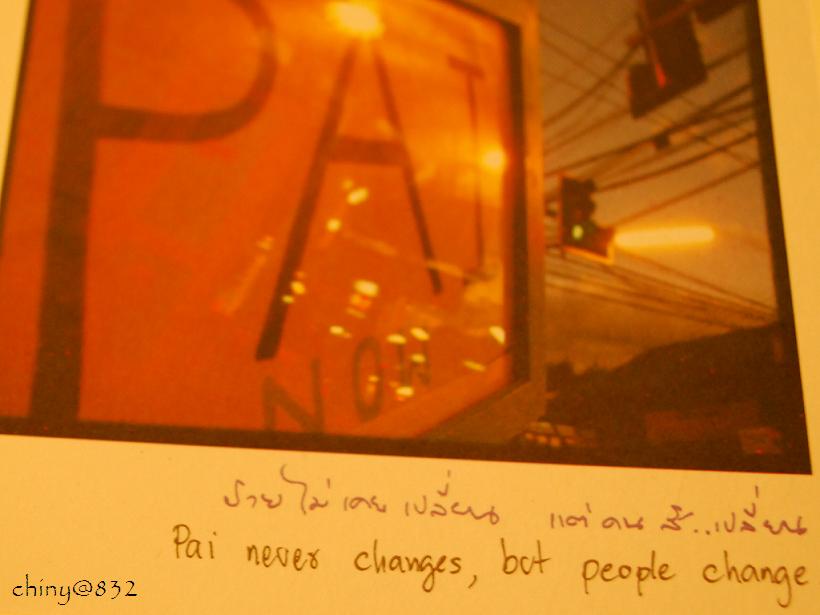 PAI
NOW
ปายไม่เคยเปลี่ยน แต่คนสิ..เปลี่ยน
Pai never changes, but people change
chiny@832